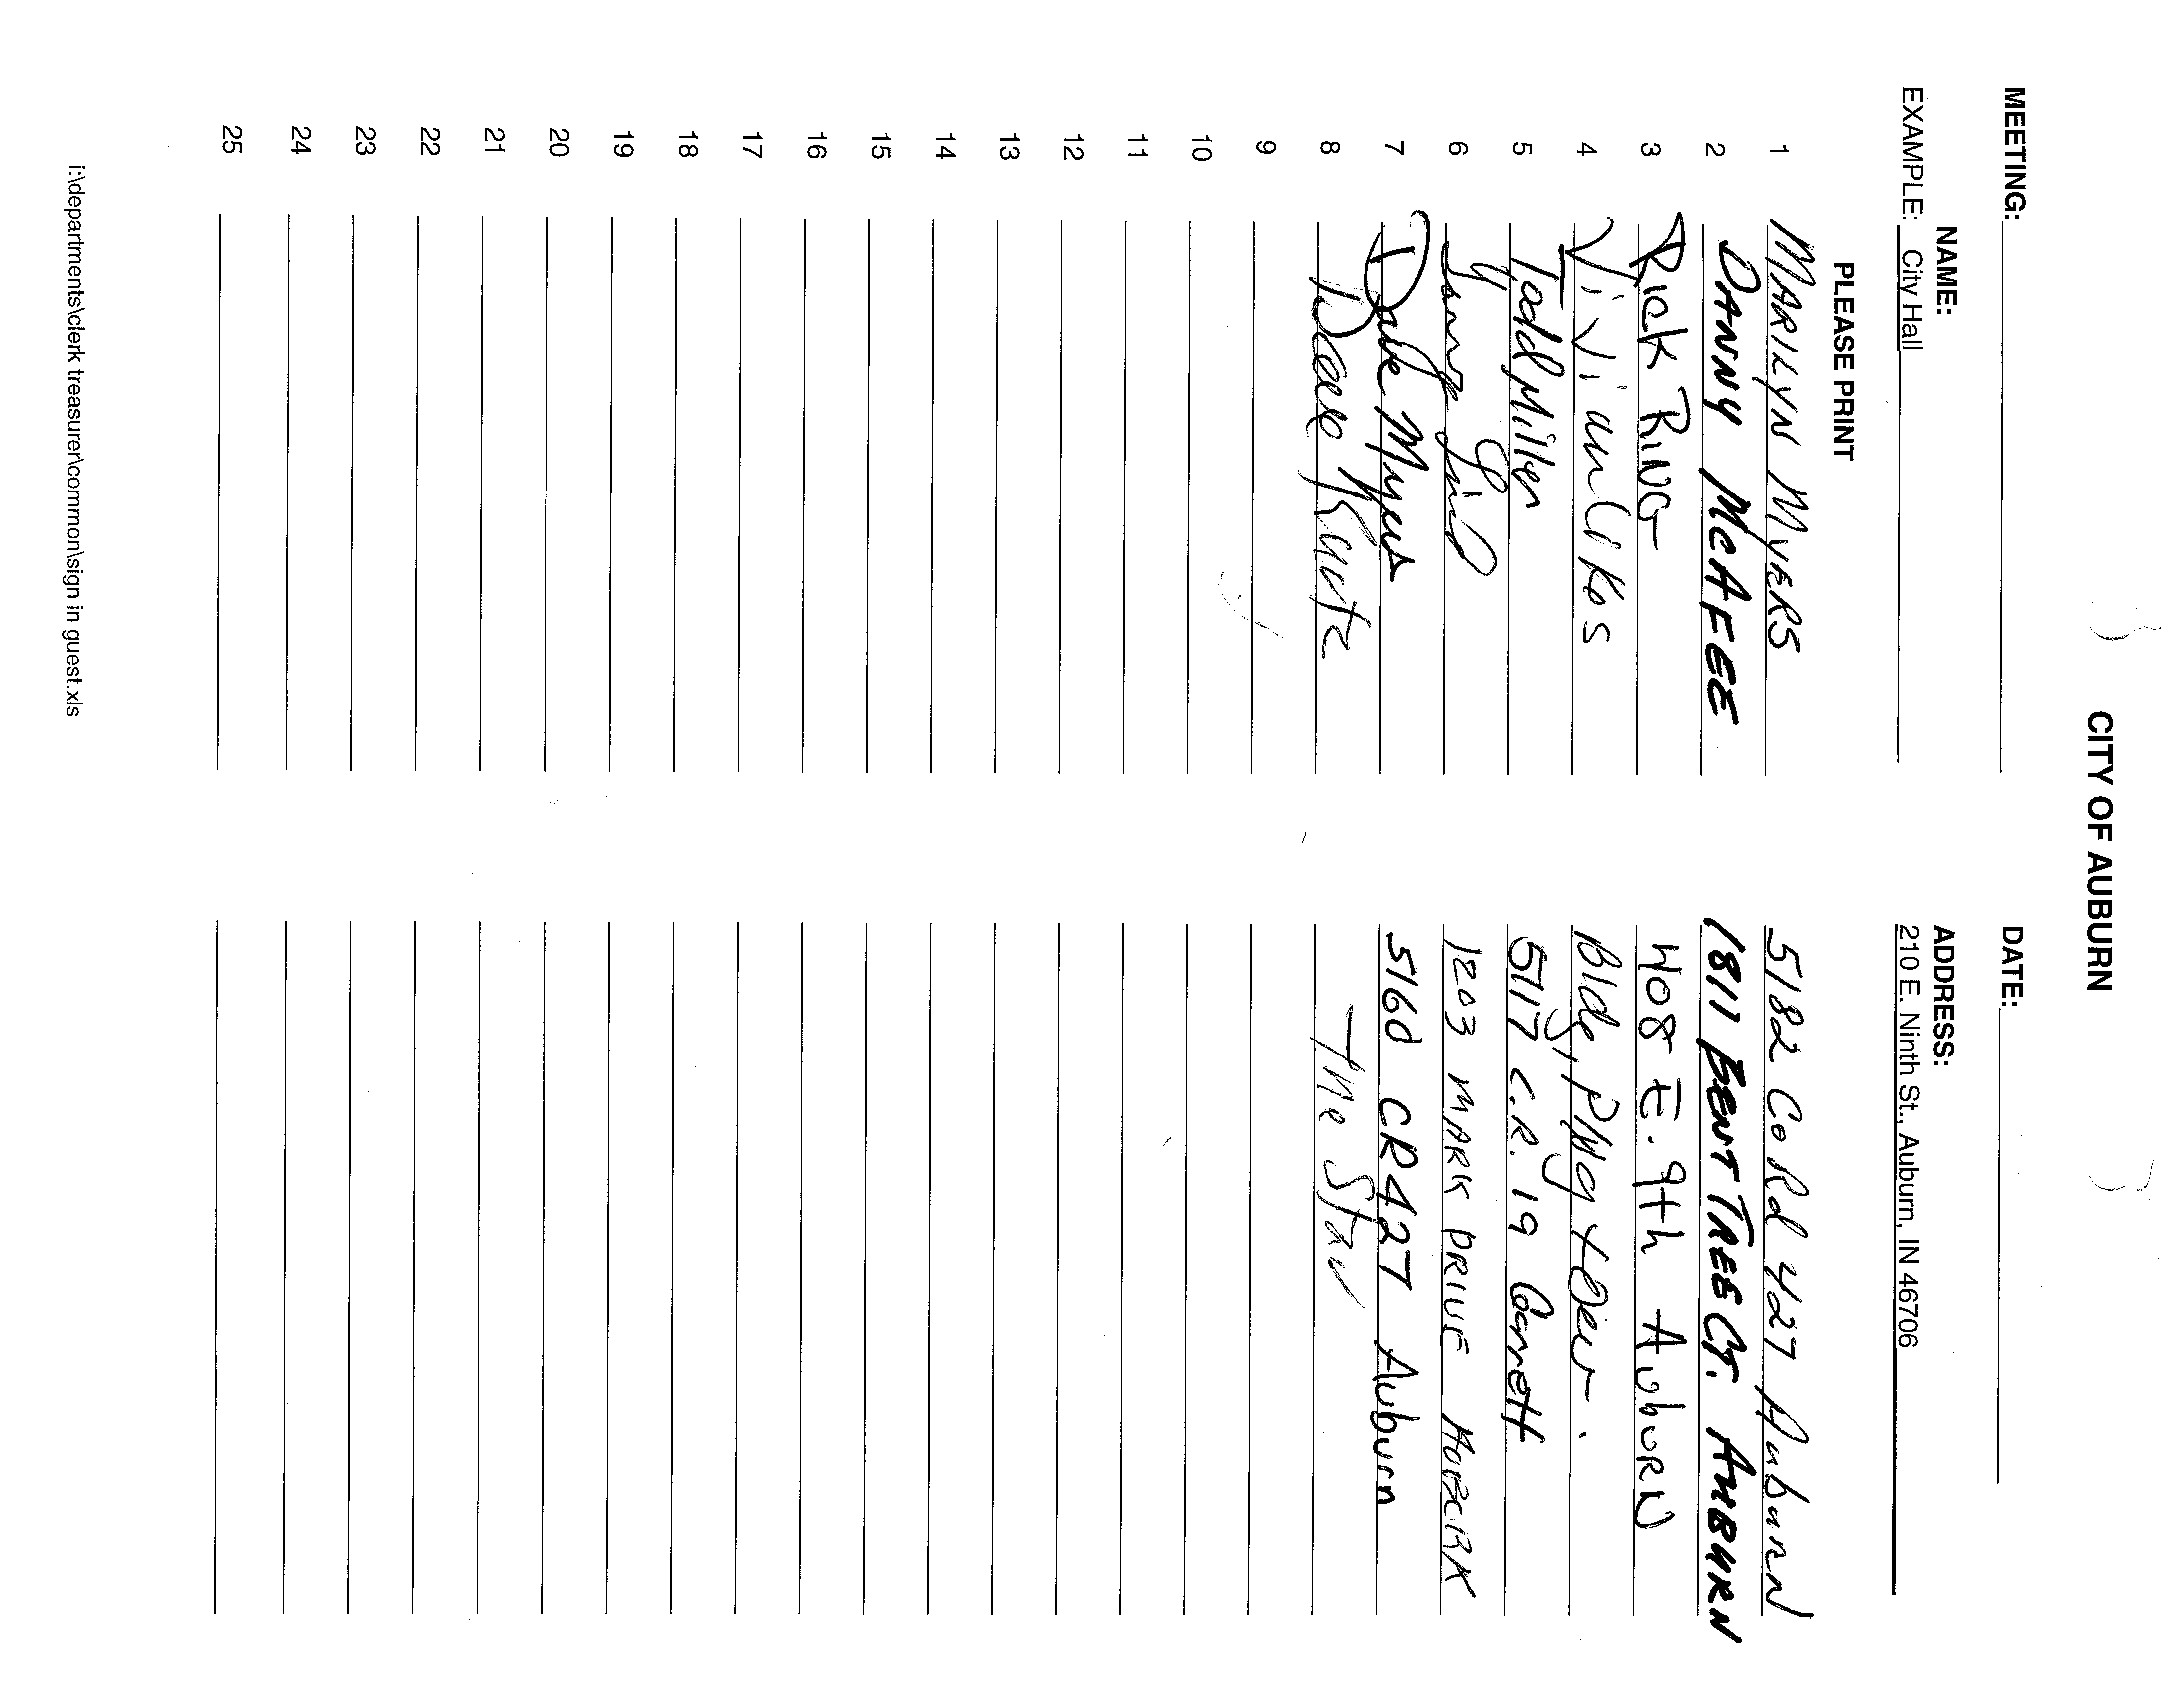 CITY OF AUBURN
MEETING: DATE:
NAME: ADDRESS:
EXAMPLE: City Hall 210 E. Ninth St., Auburn, IN 46706
PLEASE PRINT
1 MARILYN MYERS 5182 Co Rd 427 Auburn
2 DANNY McAFEE 1811 BENT TREE CT. AUBURN
3 Rick RING 408 E. 9th AubuRN
4 Vivian Likos Bldg, Plng + Dev.
5 Todd Miller 5717 C.R. 19 Garrett
6 1203 MARK DRIVE
7 Dale Myers 5160 CR427 Auburn
8 Dave Kurtz The Star
9
10
11
12
13
14
15
16
17
18
19
20
21
22
23
24
25
i:\departments\clerk treasurer\common\sign in guest.xls